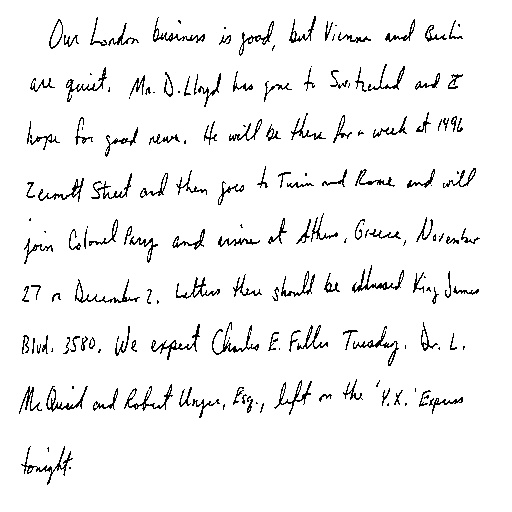 Our London business is good, but Vienna and Berlin
are quiet. Mr. D. Lloyd has gone to Switzerland and I
hope for good news. He will be there for a week at 1496
Zermott Street and then goes to Turin and Rome and will
join Colonel Parry and arrive at Athens, Greece, November
27 or December 2. Letters there should be addressed King James
Blvd. 3580. We expect Charles E. Fuller Tuesday. Dr. L.
McQuaid and Robert Unger, Esq., left on the 'Y.X.' Express
tonight.